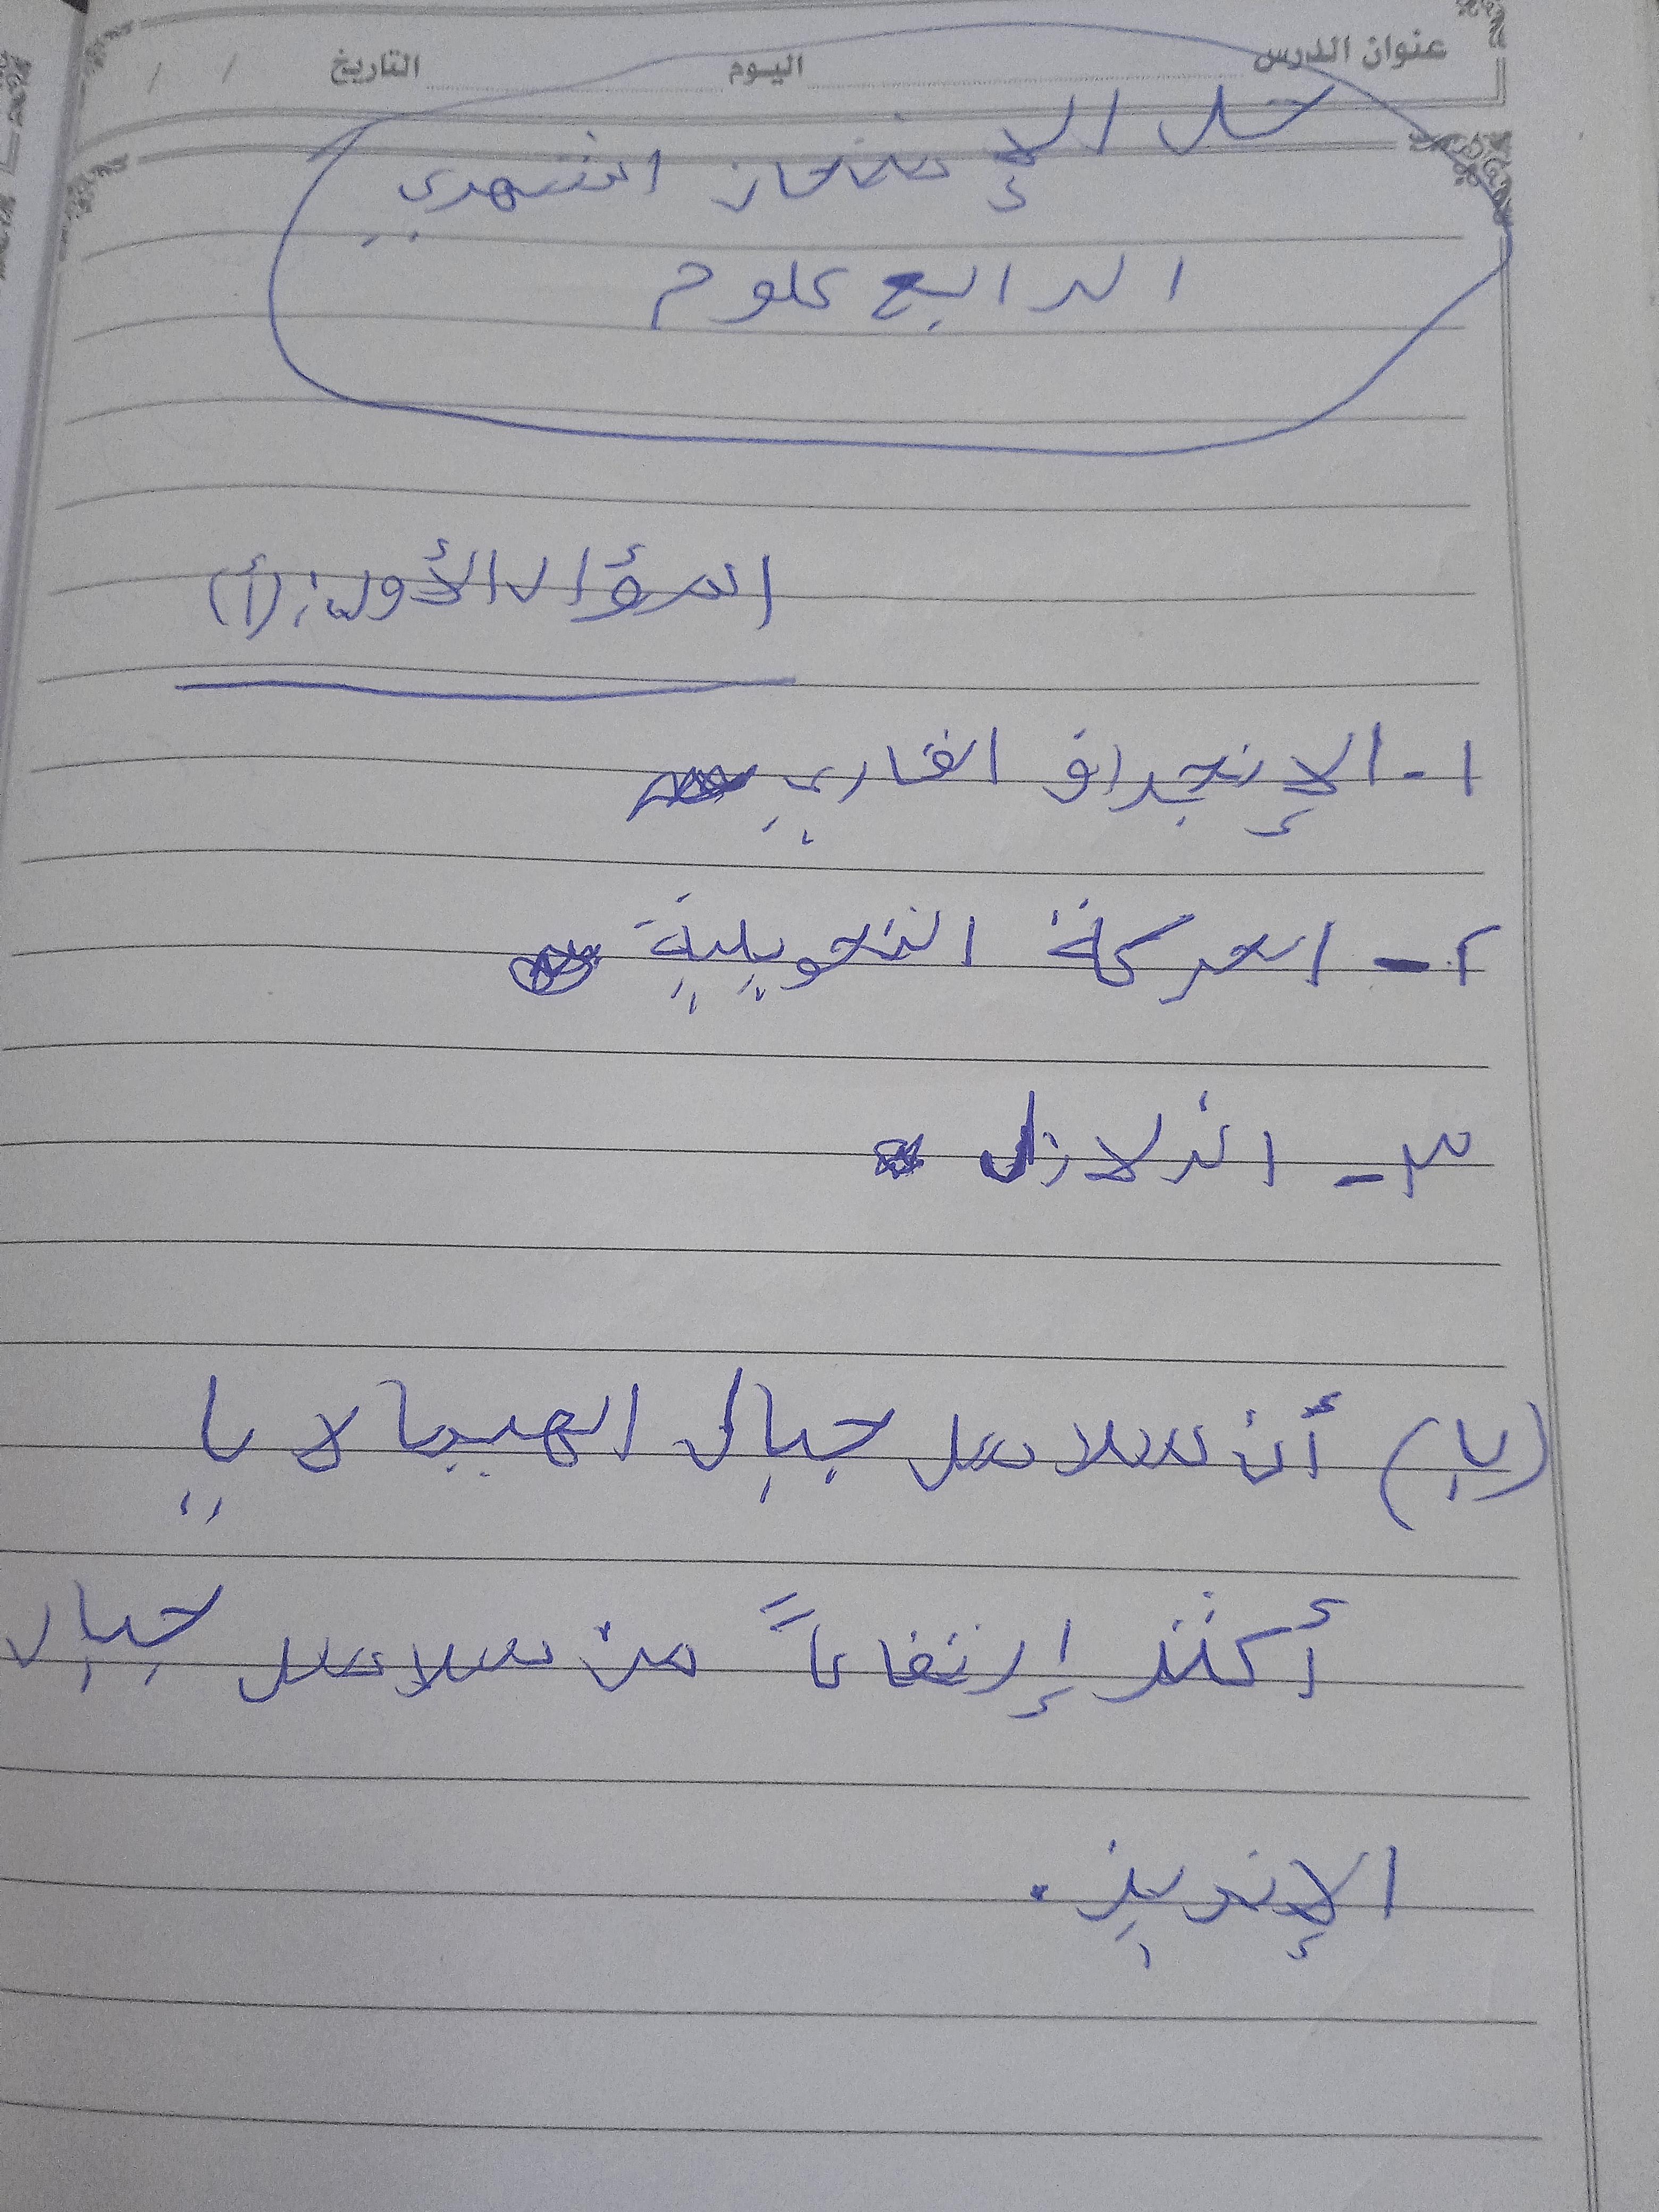 عنوان الدرس اليوم التاريخ / /
حل الإمتحان الشهري
الرابع علوم
السؤال الأول: (أ)
١- الإنجراف القاري
٢- الحركة التحويلية
٣- الزلازل
(ب) أن سلاسل جبال الهيمالايا
أكثر إرتفاعاً من سلاسل جبال
الإنديز.